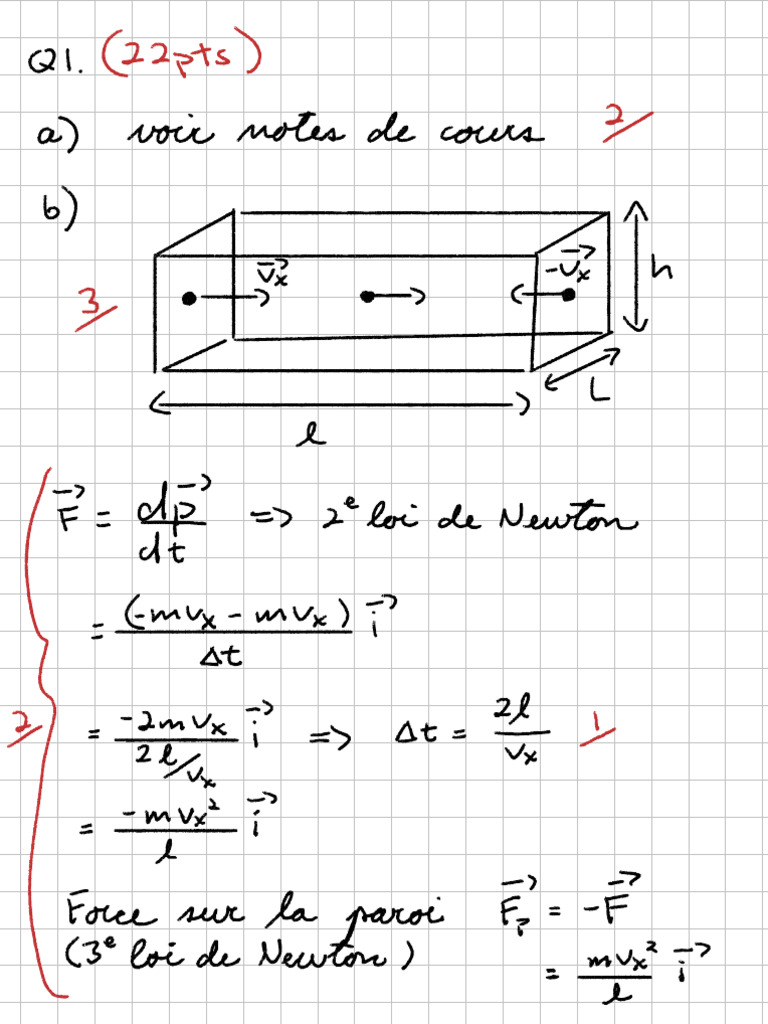 Q1. (22pts)
a) voir notes de cours 2
b)
\vec{v}_x -\vec{v}_x h
3
L
l
\vec{F} = \frac{d\vec{p}}{dt} => 2^e loi de Newton
= \frac{(-mv_x - mv_x)}{Δt} \vec{i}
2 = \frac{-2mv_x}{2l/v_x} \vec{i} => Δt = \frac{2l}{v_x} 1
= \frac{-mv_x^2}{l} \vec{i}
Force sur la paroi \vec{F}_p = -\vec{F}
(3^e loi de Newton) = \frac{mv_x^2}{l} \vec{i}